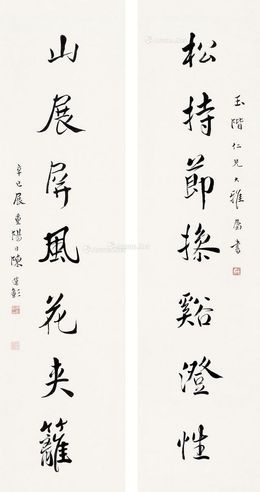 玉階仁兄大雅屬書
松持節操谿澄性
山展屏風花夾籬
辛巳展重陽日陳運彰